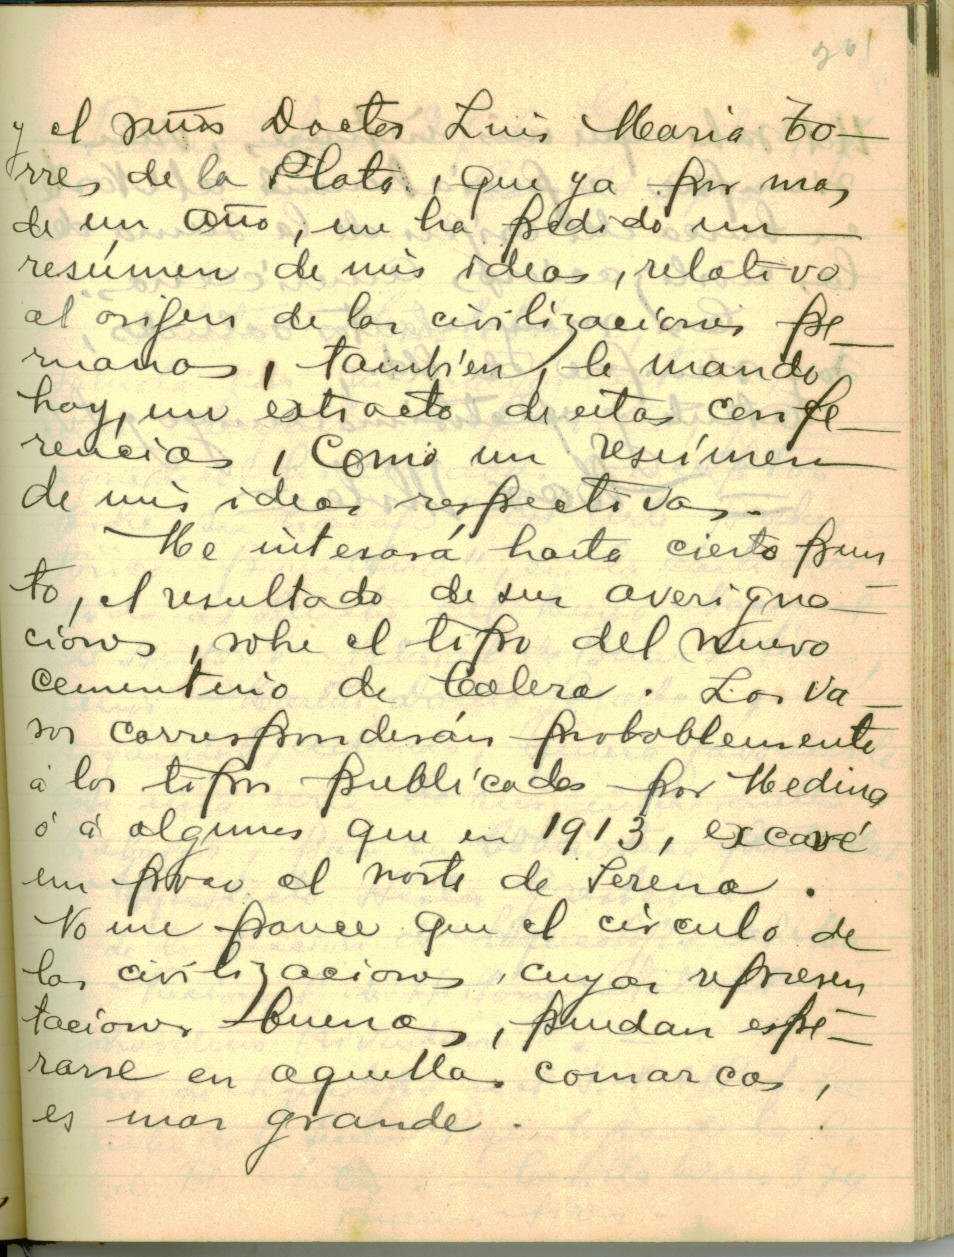 261
y el señor Doctor Luis Maria To-
rres de la Plata, que ya por mas
de un año, me ha pedido un
resúmen de mis ideas, relativo
al orijen de las civilizaciones pe-
ruanas, también, le mando
hoy, un extracto de estas confe-
rencias, como un resúmen
de mis ideas respectivas.
Me intesará hasta cierto pun
to, el resultado de sus averigua-
ciones, sobre el tipo del nuevo
cementerio de Calera. Los va-
sos corresponderán probablemente
á los tipos publicados por Medina
ó á algunos que en 1913, excavé
un poco al norte de Serena.
No me parece que el círculo de
las civilizaciones, cuyas represen
taciones buenas, puedan espe-
rarse en aquellas comarcas,
es mas grande.